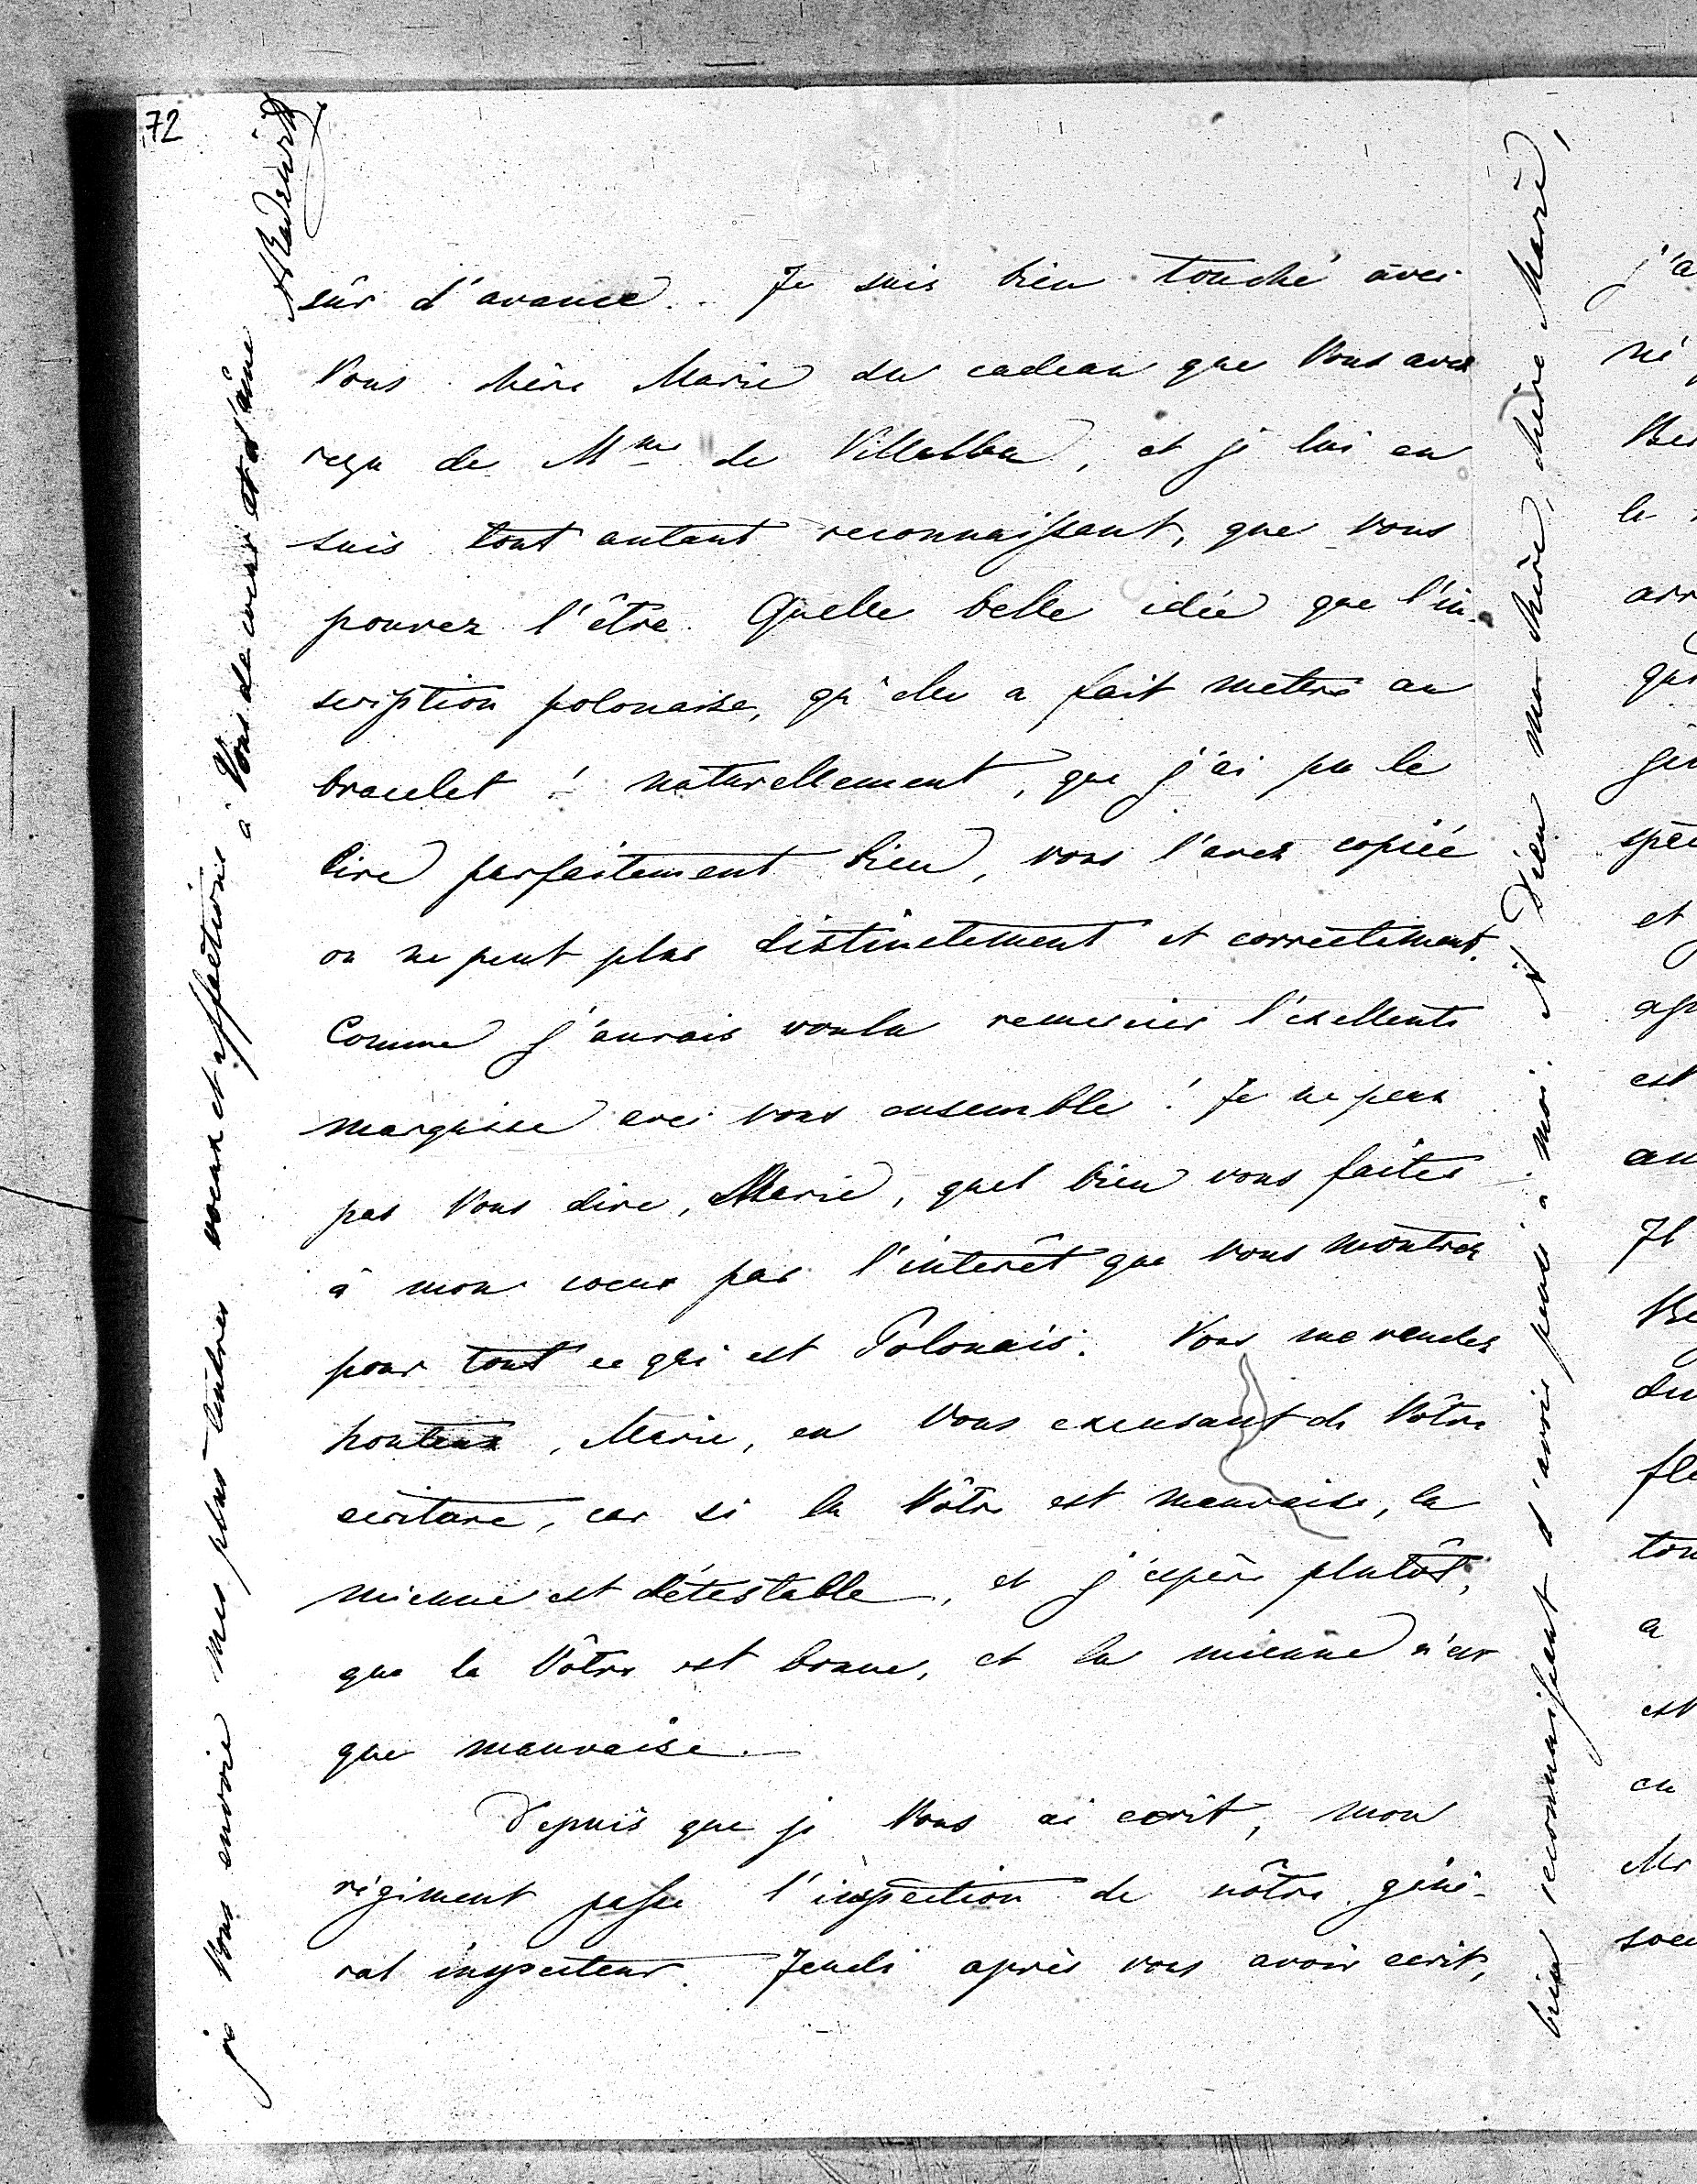 72
sûr d'avance. Je suis bien touché avec
Vous chère Marie du cadeau que Vous avez
reçu de Mme de Villalba, et je lui en
suis tout autant reconnaissant, que vous
pouvez l'être. Quelle belle idée que l'in-
scription polonaise, qu'elle a fait mettre au
bracelet! naturellement, que j'ai pu le
lire parfaitement bien, vous l'avez copiée
on ne peut plus distinctement et correctement.
Comme j'aurais voulu remercier l'exellente
marquise avec vous ensemble! Je ne peux
pas Vous dire, Marie, quel bien vous faites
à mon coeur par l'interêt que vous montrez
pour tout ce qui est Polonais. Vous me rendez
honteux, Marie, en Vous excusant de Vôtre
ecriture, car si la Vôtre est mauvaise, la
mienne est détestable, et j'espère plutôt,
que la Vôtre est bonne, et la mienne n'est
que mauvaise.
Depuis que je Vous ai ecrit, mon
régiment passa l'inspection de nôtre géné-
ral inspecteur. Jeudi après vous avoir ecrit,
bien reconnaissant d'avoir pensé à moi. A Dieu ma chère, chère Marie,
je Vous envoie mes plus tendres voeux et affections
à Vous de coeur et d'âme